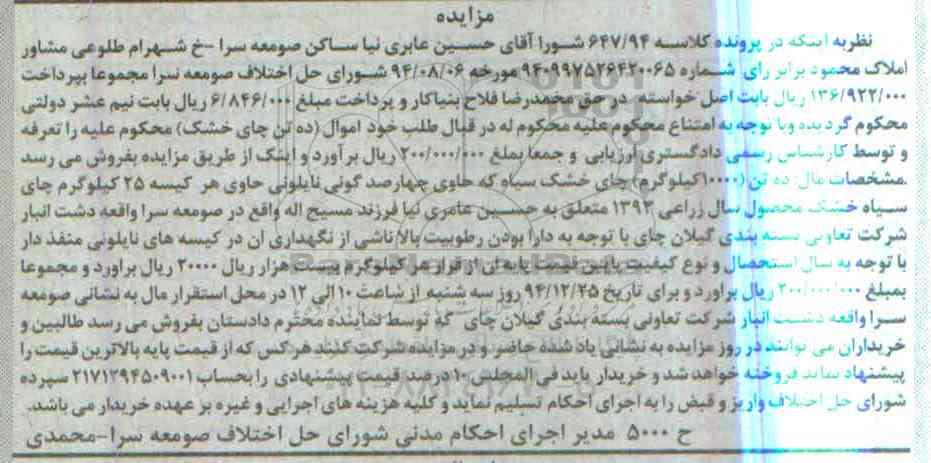 مزایده
نظربه اینکه در پرونده کلاسه ۶۴۷/۹۴ شورا آقای حسین عابری نیا ساکن صومعه سرا -خ شهرام طلوعی مشاور
املاک محمود برابر رای شماره ۹۴۰۹۹۷۵۲۶۴۲۰۰۶۵ مورخه ۹۴/۰۸/۰۶ شورای حل اختلاف صومعه سرا مجموعا بپرداخت
۱۳۶/۹۲۲/۰۰۰ ریال بابت اصل خواسته در حق محمدرضا فلاح بنیاکار و پرداخت مبلغ ۶/۸۴۶/۰۰۰ ریال بابت نیم عشر دولتی
محکوم گردیده وبا توجه به امتناع محکوم علیه محکوم له در قبال طلب خود اموال (ده تن چای خشک) محکوم علیه را تعرفه
و توسط کارشناس رسمی دادگستری ارزیابی و جمعا بمبلغ ۲۰۰/۰۰۰/۰۰۰ ریال برآورد و اینک از طریق مزایده بفروش می رسد
.مشخصات مال: ده تن (۱۰۰۰۰کیلوگرم) چای خشک سیاه که حاوی چهارصد گونی نایلونی حاوی هر کیسه ۲۵ کیلوگرم چای
سیاه خشک محصول سال زراعی ۱۳۹۳ متعلق به حسین عامری نیا فرزند مسیح اله واقع در صومعه سرا واقعه دشت انبار
شرکت تعاونی بسته بندی گیلان چای با توجه به دارا بودن رطوبیت بالا ناشی از نگهداری ان در کیسه های نایلونی منفذ دار
با توجه به سال استحصال و نوع کیفیت پایین قیمت پایه ان از قرار هر کیلوگرم بیست هزار ریال ۲۰۰۰۰ ریال براورد و مجموعا
بمبلغ ۲۰۰/۰۰۰/۰۰۰ ریال براورد و برای تاریخ ۹۴/۱۲/۲۵ روز سه شنبه از ساعت ۱۰ الی ۱۲ در محل استقرار مال به نشانی صومعه
سرا واقعه دشت انبار شرکت تعاونی بسته بندی گیلان چای که توسط نماینده محترم دادستان بفروش می رسد طالبین و
خریداران می توانند در روز مزایده به نشانی یاد شده حاضر و در مزایده شرکت کنند هر کس که از قیمت پایه بالاترین قیمت را
پیشنهاد نماید فروخته خواهد شد و خریدار باید فی المجلس ۱۰ درصد قیمت پیشنهادی را بحساب ۲۱۷۱۲۹۴۵۰۹۰۰۱ سپرده
شورای حل اختلاف واریز و قبض را به اجرای احکام تسلیم نماید و کلیه هزینه های اجرایی و غیره بر عهده خریدار می باشد.
ح ۵۰۰۰ مدیر اجرای احکام مدنی شورای حل اختلاف صومعه سرا-محمدی